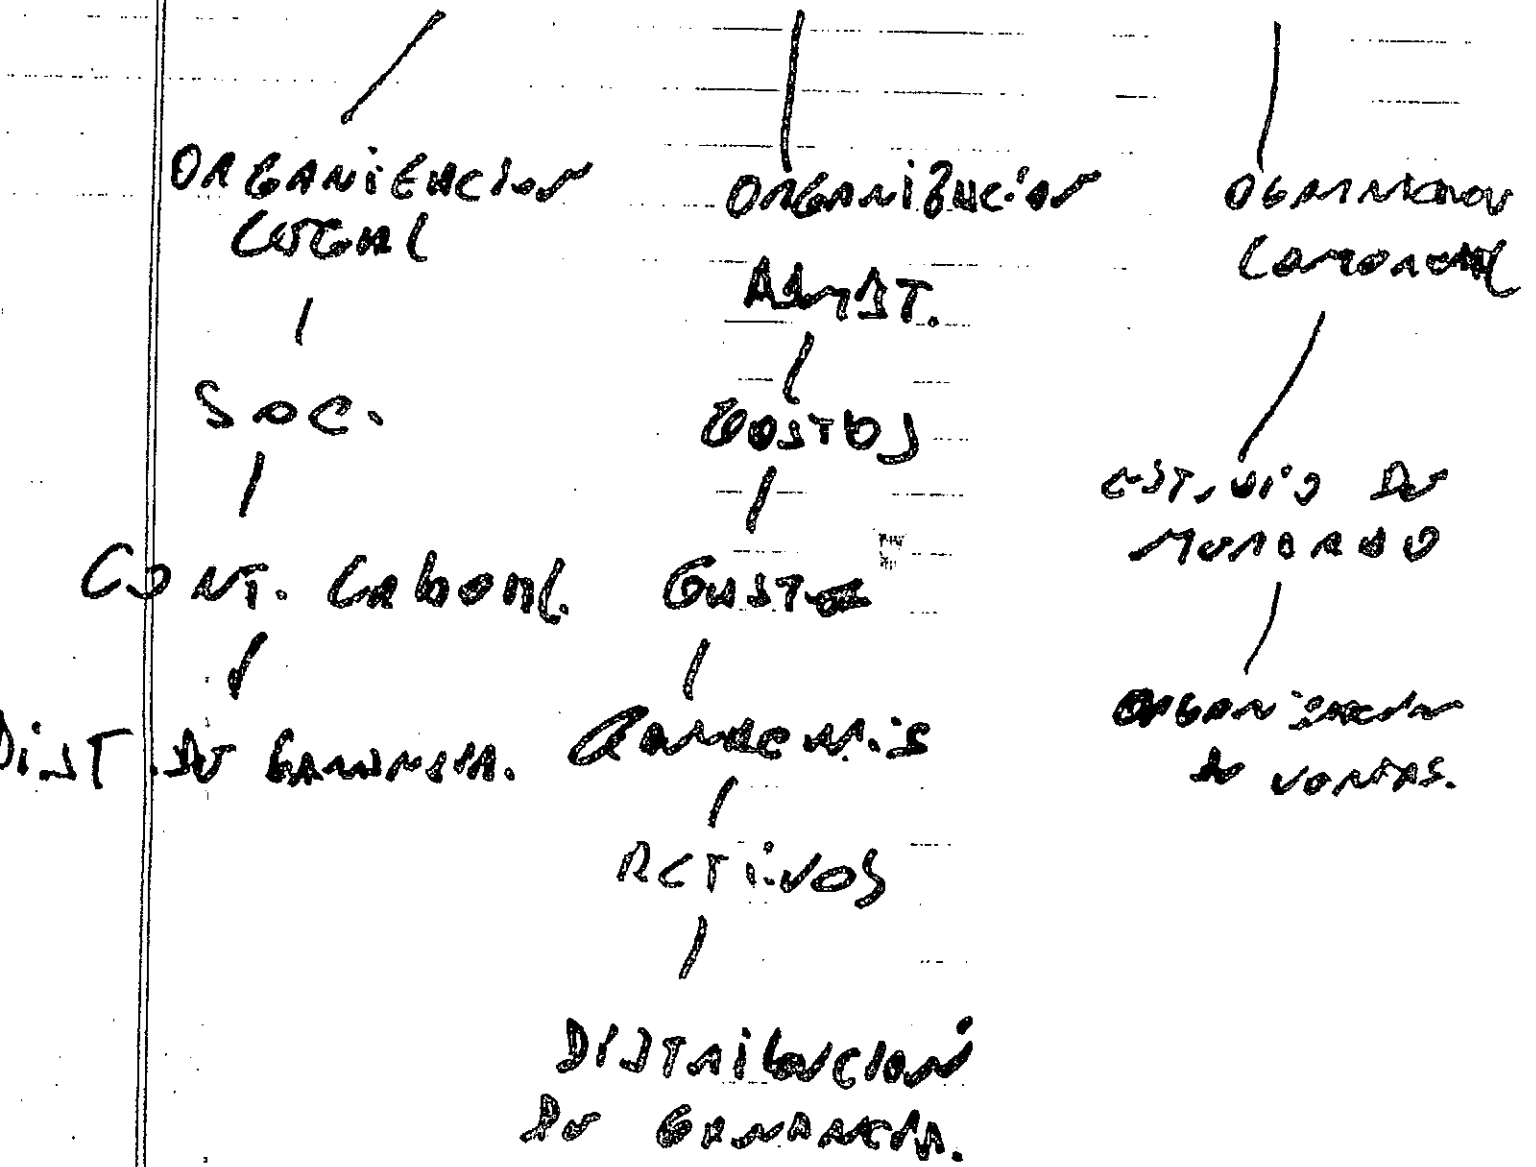 ORGANIZACION
LEGAL
SOC.
CONT. LABORAL.
DIST. DE GANANCIA.
ORGANIZACION
ADMIST.
COSTOS
GASTOS
GANANCIAS
ACTIVOS
DISTRIBUCION
DE GANANCIA.
COMERCIAL
ESTUDIO DE
MERCADO
ORGANIZACION
DE VENTAS.